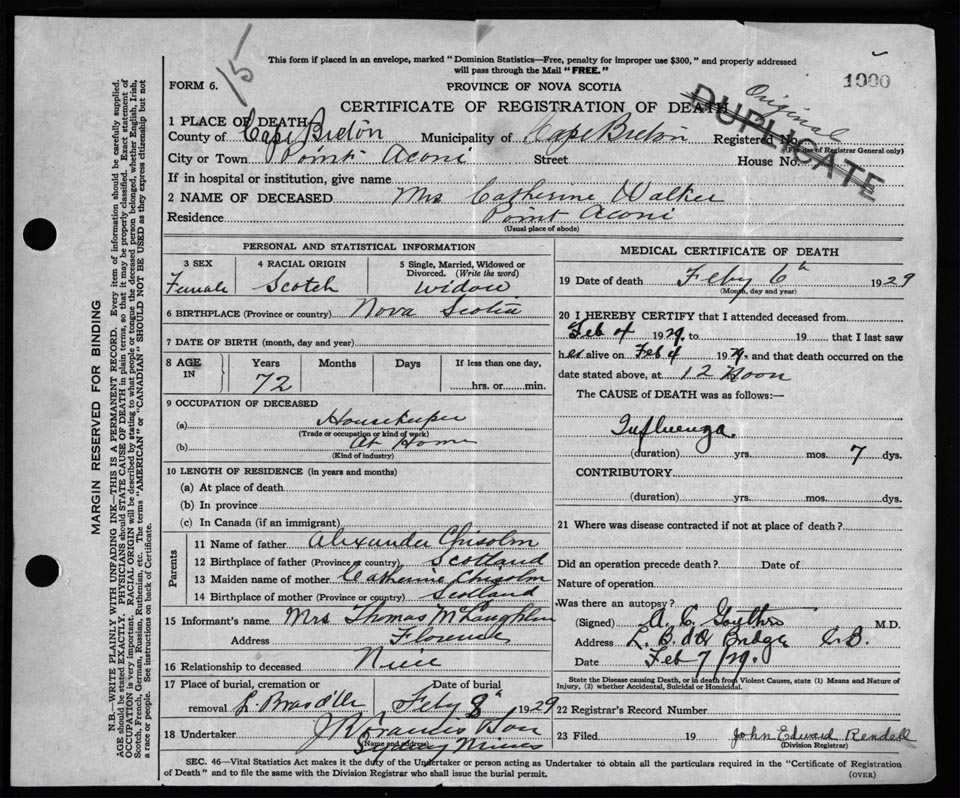 15
This form if placed in an envelope, marked "Dominion Statistics—Free, penalty for improper use $300," and properly addressed
will pass through the Mail "FREE."
1000
FORM 6.
PROVINCE OF NOVA SCOTIA
CERTIFICATE OF REGISTRATION OF DEATH
Original
DUPLICATE
1 PLACE OF DEATH
County of Cape Breton Municipality of Cape Breton Registered No.
(For use of Registrar General only)
City or Town Point Aconi Street House No.
If in hospital or institution, give name
2 NAME OF DECEASED Mrs Catherine Walker
Residence Point Aconi
(Usual place of abode)
PERSONAL AND STATISTICAL INFORMATION
3 SEX 4 RACIAL ORIGIN 5 Single, Married, Widowed or Divorced. (Write the word)
Female Scotch widow
6 BIRTHPLACE (Province or country) Nova Scotia
7 DATE OF BIRTH (month, day and year)
8 AGE IN Years Months Days If less than one day,
72 hrs. or min.
9 OCCUPATION OF DECEASED
(a) Housekeeper
(Trade or occupation or kind of work)
(b) At Home
(Kind of industry)
10 LENGTH OF RESIDENCE (in years and months)
(a) At place of death
(b) In province
(c) In Canada (if an immigrant)
Parents
11 Name of father Alexander Chisolm
12 Birthplace of father (Province or country) Scotland
13 Maiden name of mother Catherine Chisolm
14 Birthplace of mother (Province or country) Scotland
15 Informant's name Mrs. Thomas McLaughlin
Address Florence
16 Relationship to deceased Niece
17 Place of burial, cremation or Date of burial
removal L Bras d'Or Feby 8th 1929
18 Undertaker J R Francis & Son
(Name and address)
Sydney Mines
MEDICAL CERTIFICATE OF DEATH
19 Date of death Feby 6th 1929
(Month, day and year)
20 I HEREBY CERTIFY that I attended deceased from
Feb 4 1929, to 19 that I last saw
her alive on Feb 4 1929, and that death occurred on the
date stated above, at 12 Noon
The CAUSE OF DEATH was as follows:—
Influenza.
(duration) yrs. mos. 7 dys.
CONTRIBUTORY
(duration) yrs. mos. dys.
21 Where was disease contracted if not at place of death?
Did an operation precede death? Date of
Nature of operation
Was there an autopsy?
(Signed) A. C. Gouthro M.D.
Address L. B. d'Or Bridge C.B.
Date Feb 7/29.
State the Disease causing Death, or in death from Violent Causes, state (1) Means and Nature of
Injury, (2) whether Accidental, Suicidal or Homicidal.
22 Registrar's Record Number
23 Filed 19 John Edward Rendell
(Division Registrar)
SEC. 46—Vital Statistics Act makes it the duty of the Undertaker or person acting as Undertaker to obtain all the particulars required in the "Certificate of Registration
of Death" and to file the same with the Division Registrar who shall issue the burial permit.
(OVER)
MARGIN RESERVED FOR BINDING
N.B.—WRITE PLAINLY WITH UNFADING INK—THIS IS A PERMANENT RECORD. Every item of information should be carefully supplied.
AGE should be stated EXACTLY. PHYSICIANS should STATE CAUSE OF DEATH in plain terms, so that it may be properly classified. Exact statement of
OCCUPATION is very important. RACIAL ORIGIN will be described by stating to what people or tongue the deceased person belonged, whether English, Irish,
Scotch, French, German, Russian, Ruthenian, etc. The terms "AMERICAN" or "CANADIAN" SHOULD NOT BE USED as they express citizenship but not
a race or people. See instructions on back of Certificate.